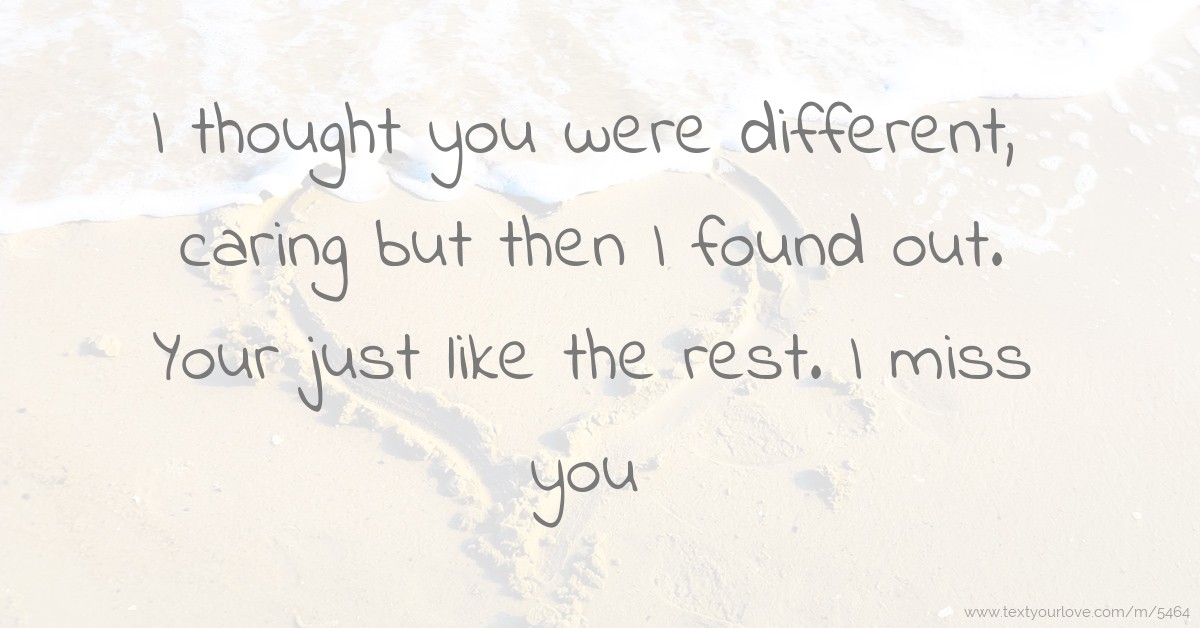 I thought you were different,
caring but then I found out.
Your just like the rest. I miss
you
www.textyourlove.com/m/5464